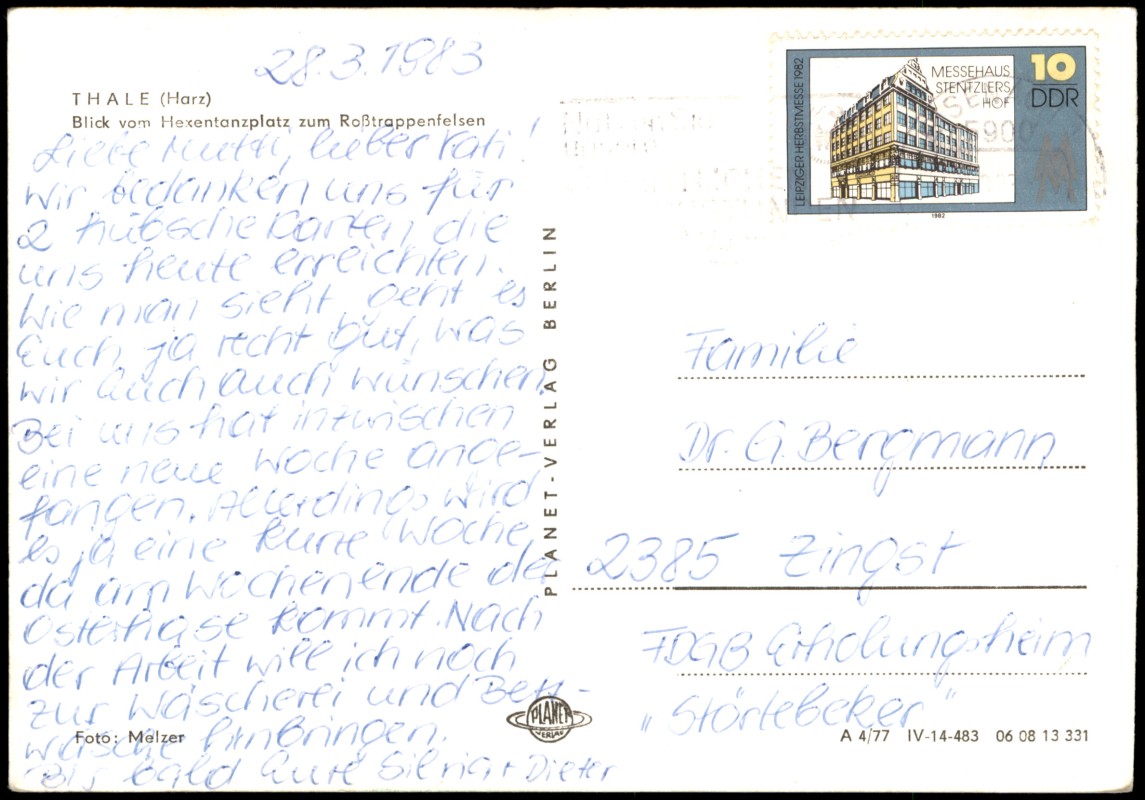 28.3.1983
THALE (Harz)
Blick vom Hexentanzplatz zum Roßtrappenfelsen
Liebe Mutti, lieber Vati!
Wir bedanken uns für
2 hübsche Karten, die
uns heute erreichten.
Wie man sieht geht es
Euch ja recht gut, was
wir Euch auch wünschen.
Bei uns hat inzwischen
eine neue Woche ange-
fangen. Allerdings wird
es ja eine kurze Woche,
da am Wochenende der
Osterhase kommt. Nach
der Arbeit will ich noch
zur Wäscherei und Bett-
wäsche hinbringen.
Bis bald Eure Silvia + Dieter
Foto: Melzer
PLANET-VERLAG BERLIN
PLANET
VERLAG
LEIPZIGER HERBSTMESSE 1982
MESSEHAUS
STENTZLERS
HOF
10
DDR
MM
1982
5900
Familie
Dr. G. Bergmann
2385 Zingst
FDGB Erholungsheim
„Störtebeker"
A 4/77 IV-14-483 06 08 13 331